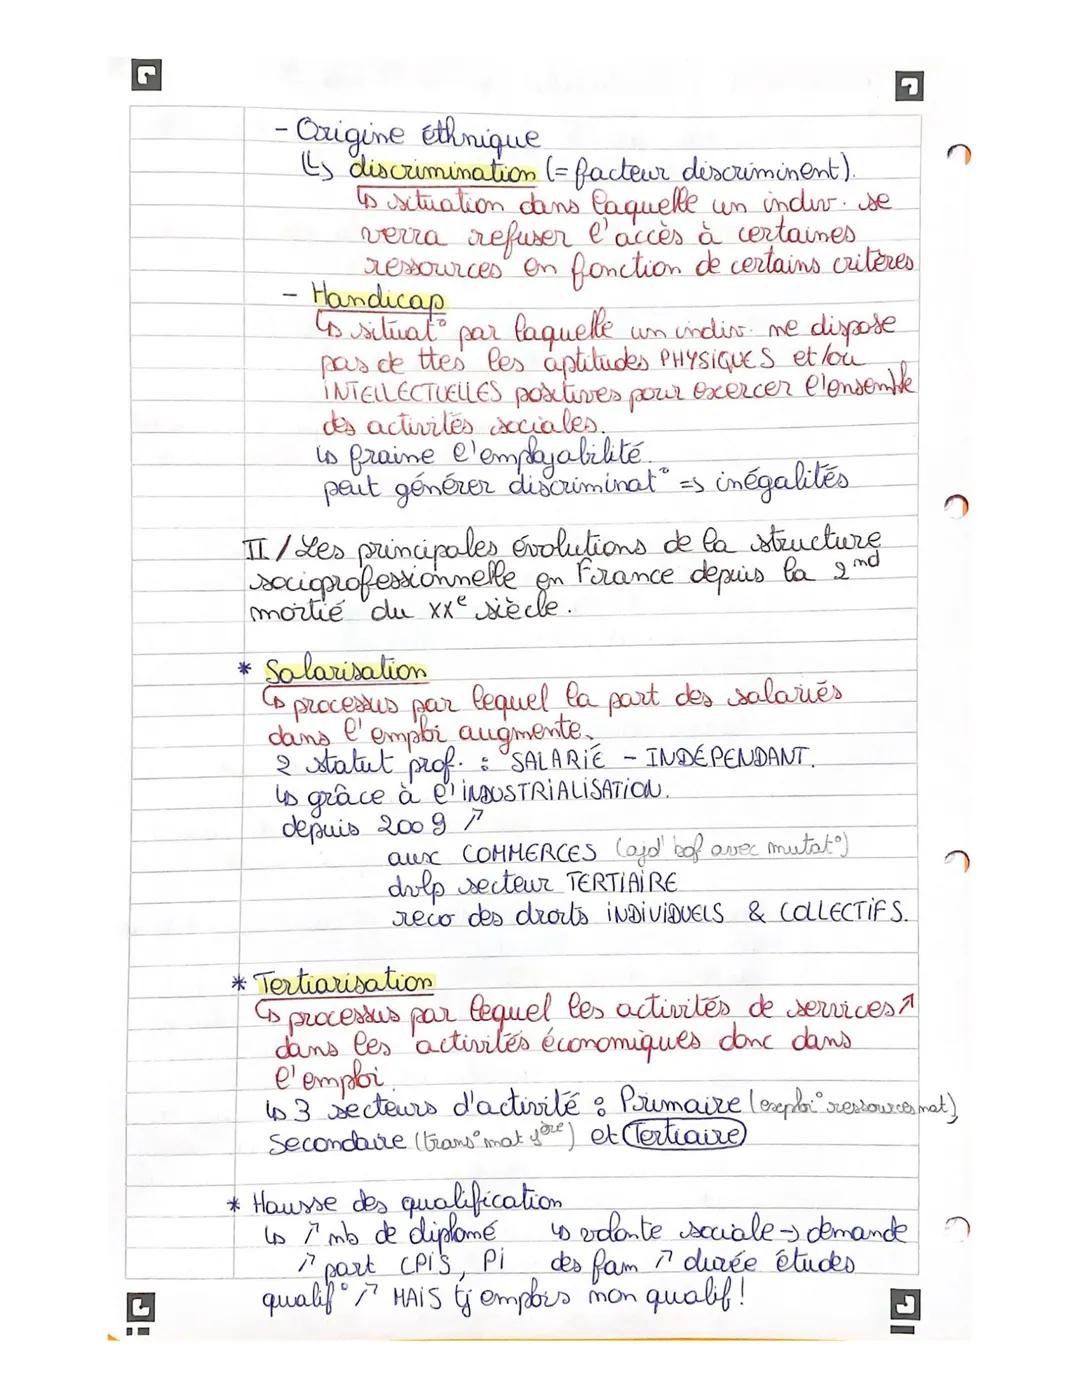 - Origine éthnique
↳ discrimination (= facteur discriminent).
↳ situation dans laquelle un indiv. se
verra refuser l'accès à certaines
ressources en fonction de certains critères
- Handicap
↳ situat° par laquelle un indiv. ne dispose
pas de ttes les aptitudes PHYSIQUES et/ou
INTELLECTUELLES positives pour exercer l'ensemble
des activités sociales.
↳ fraine l'employabilité.
peut générer discriminat° => inégalités
II / Les principales évolutions de la structure
socioprofessionnelle en France depuis la 2nd
moitié du XXe siècle.
* Salarisation
↳ processus par lequel la part des salariés
dans l'emploi augmente.
2 statut prof. : SALARIÉ - INDÉPENDANT.
↳ grâce à l'INDUSTRIALISATION.
depuis 2009 ↗
aux COMMERCES (ajd' bof avec mutat°)
dvlp secteur TERTIAIRE
reco des droits INDIVIDUELS & COLLECTIFS.
* Tertiarisation
↳ processus par lequel les activités de services ↗
dans les activités économiques donc dans
l'emploi.
↳ 3 secteurs d'activité : Primaire (exploi° ressources nat)
Secondaire (trans° mat 1ère) et Tertiaire
* Hausse des qualification
↳ ↗ nb de diplomé ↳ volonte sociale → demande
↗ part CPIS, PI des fam ↗ durée études
qualif° ↗ MAIS tj emplois non qualif !